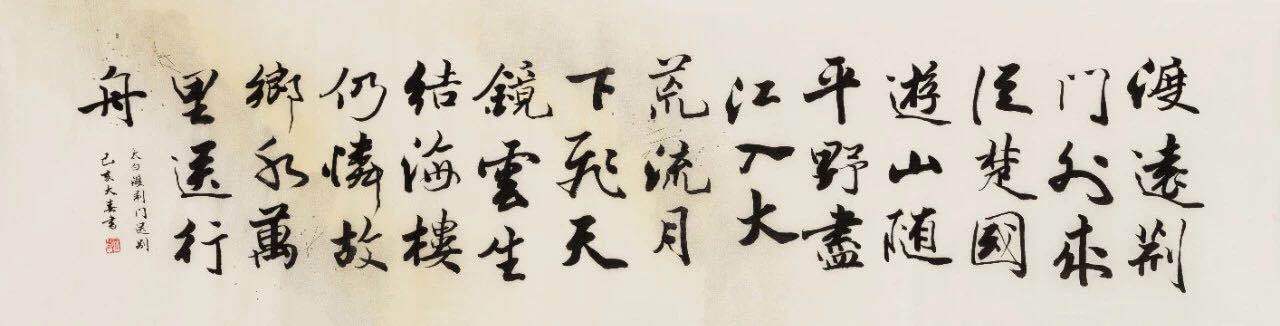 渡遠荆
門外來
從楚國
遊山随
平野盡
江入大
荒流月
下飛天
鏡雲生
結海樓
仍憐故
鄉水萬
里送行
舟
太白渡荆門送别
己亥大書